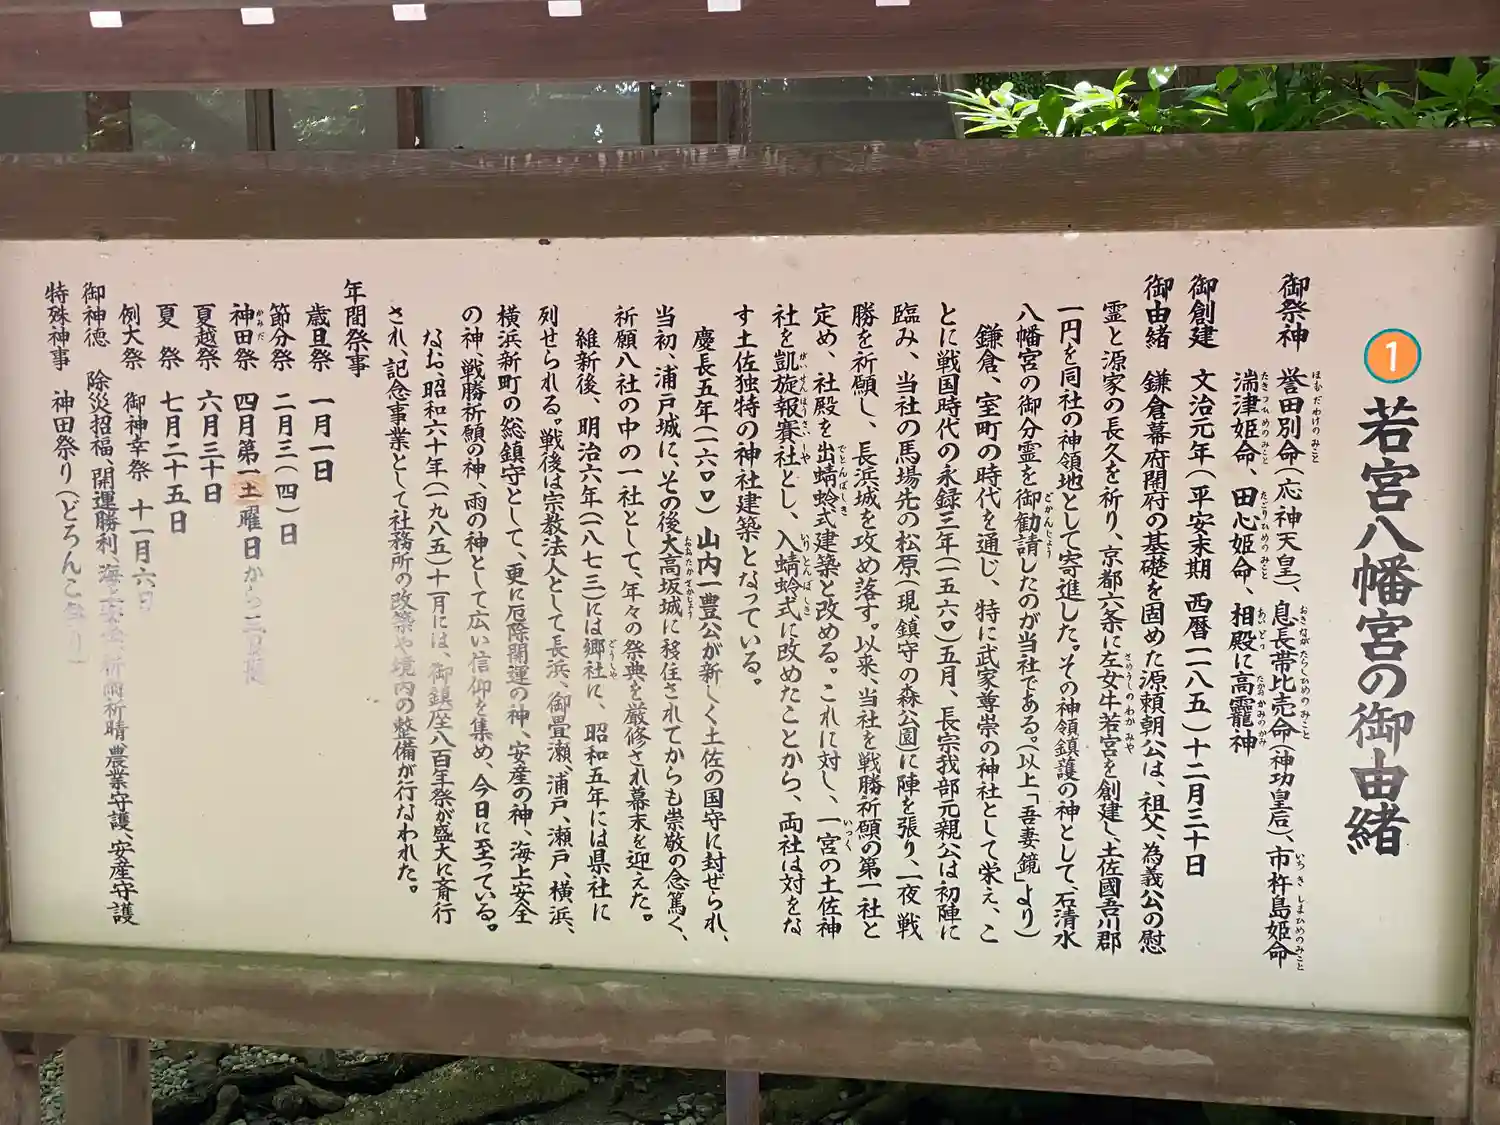 1
若宮八幡宮の御由緒
御祭神 誉田別命(応神天皇)、息長帯比売命(神功皇后)、市杵島姫命
湍津姫命、田心姫命、相殿に高靇神
御創建 文治元年(平安末期 西暦一一八五)十二月三十日
御由緒 鎌倉幕府開府の基礎を固めた源頼朝公は、祖父、為義公の慰
霊と源家の長久を祈り、京都六条に左女牛若宮を創建し、土佐國吾川郡
一円を同社の神領地として寄進した。その神領鎮護の神として、石清水
八幡宮の御分霊を御勧請したのが当社である。(以上「吾妻鏡」より)
鎌倉、室町の時代を通じ、特に武家尊崇の神社として栄え、こ
とに戦国時代の永録三年(一五六〇)五月、長宗我部元親公は初陣に
臨み、当社の馬場先の松原(現、鎮守の森公園)に陣を張り、一夜戦
勝を祈願し、長浜城を攻め落す。以来、当社を戦勝祈願の第一社と
定め、社殿を出蜻蛉式建築と改める。これに対し、一宮の土佐神
社を凱旋報賽社とし、入蜻蛉式に改めたことから、両社は対をな
す土佐独特の神社建築となっている。
慶長五年(一六〇〇)山内一豊公が新しく土佐の国守に封ぜられ、
当初、浦戸城に、その後大高坂城に移住されてからも崇敬の念篤く、
祈願八社の中の一社として、年々の祭典を厳修され幕末を迎えた。
維新後、明治六年(一八七三)には郷社に、昭和五年には県社に
列せられる。戦後は宗教法人として、長浜、御畳瀬、浦戸、瀬戸、横浜、
横浜新町の総鎮守として、更に厄除開運の神、安産の神、海上安全
の神、戦勝祈願の神、雨の神として広い信仰を集め、今日に至っている。
なお、昭和六十年(一九八五)十一月には、御鎮座八百年祭が盛大に斉行
され、記念事業として社務所の改築や境内の整備が行なわれた。
年間祭事
歳旦祭 一月一日
節分祭 二月三(四)日
神田祭 四月第一土曜日から三日間
夏越祭 六月三十日
夏祭 七月二十五日
例大祭 御神幸祭 十一月六日
御神徳 除災招福、開運勝利、海上安全、祈雨祈晴、農業守護、安産守護
特殊神事 神田祭り(どろんこ祭り)